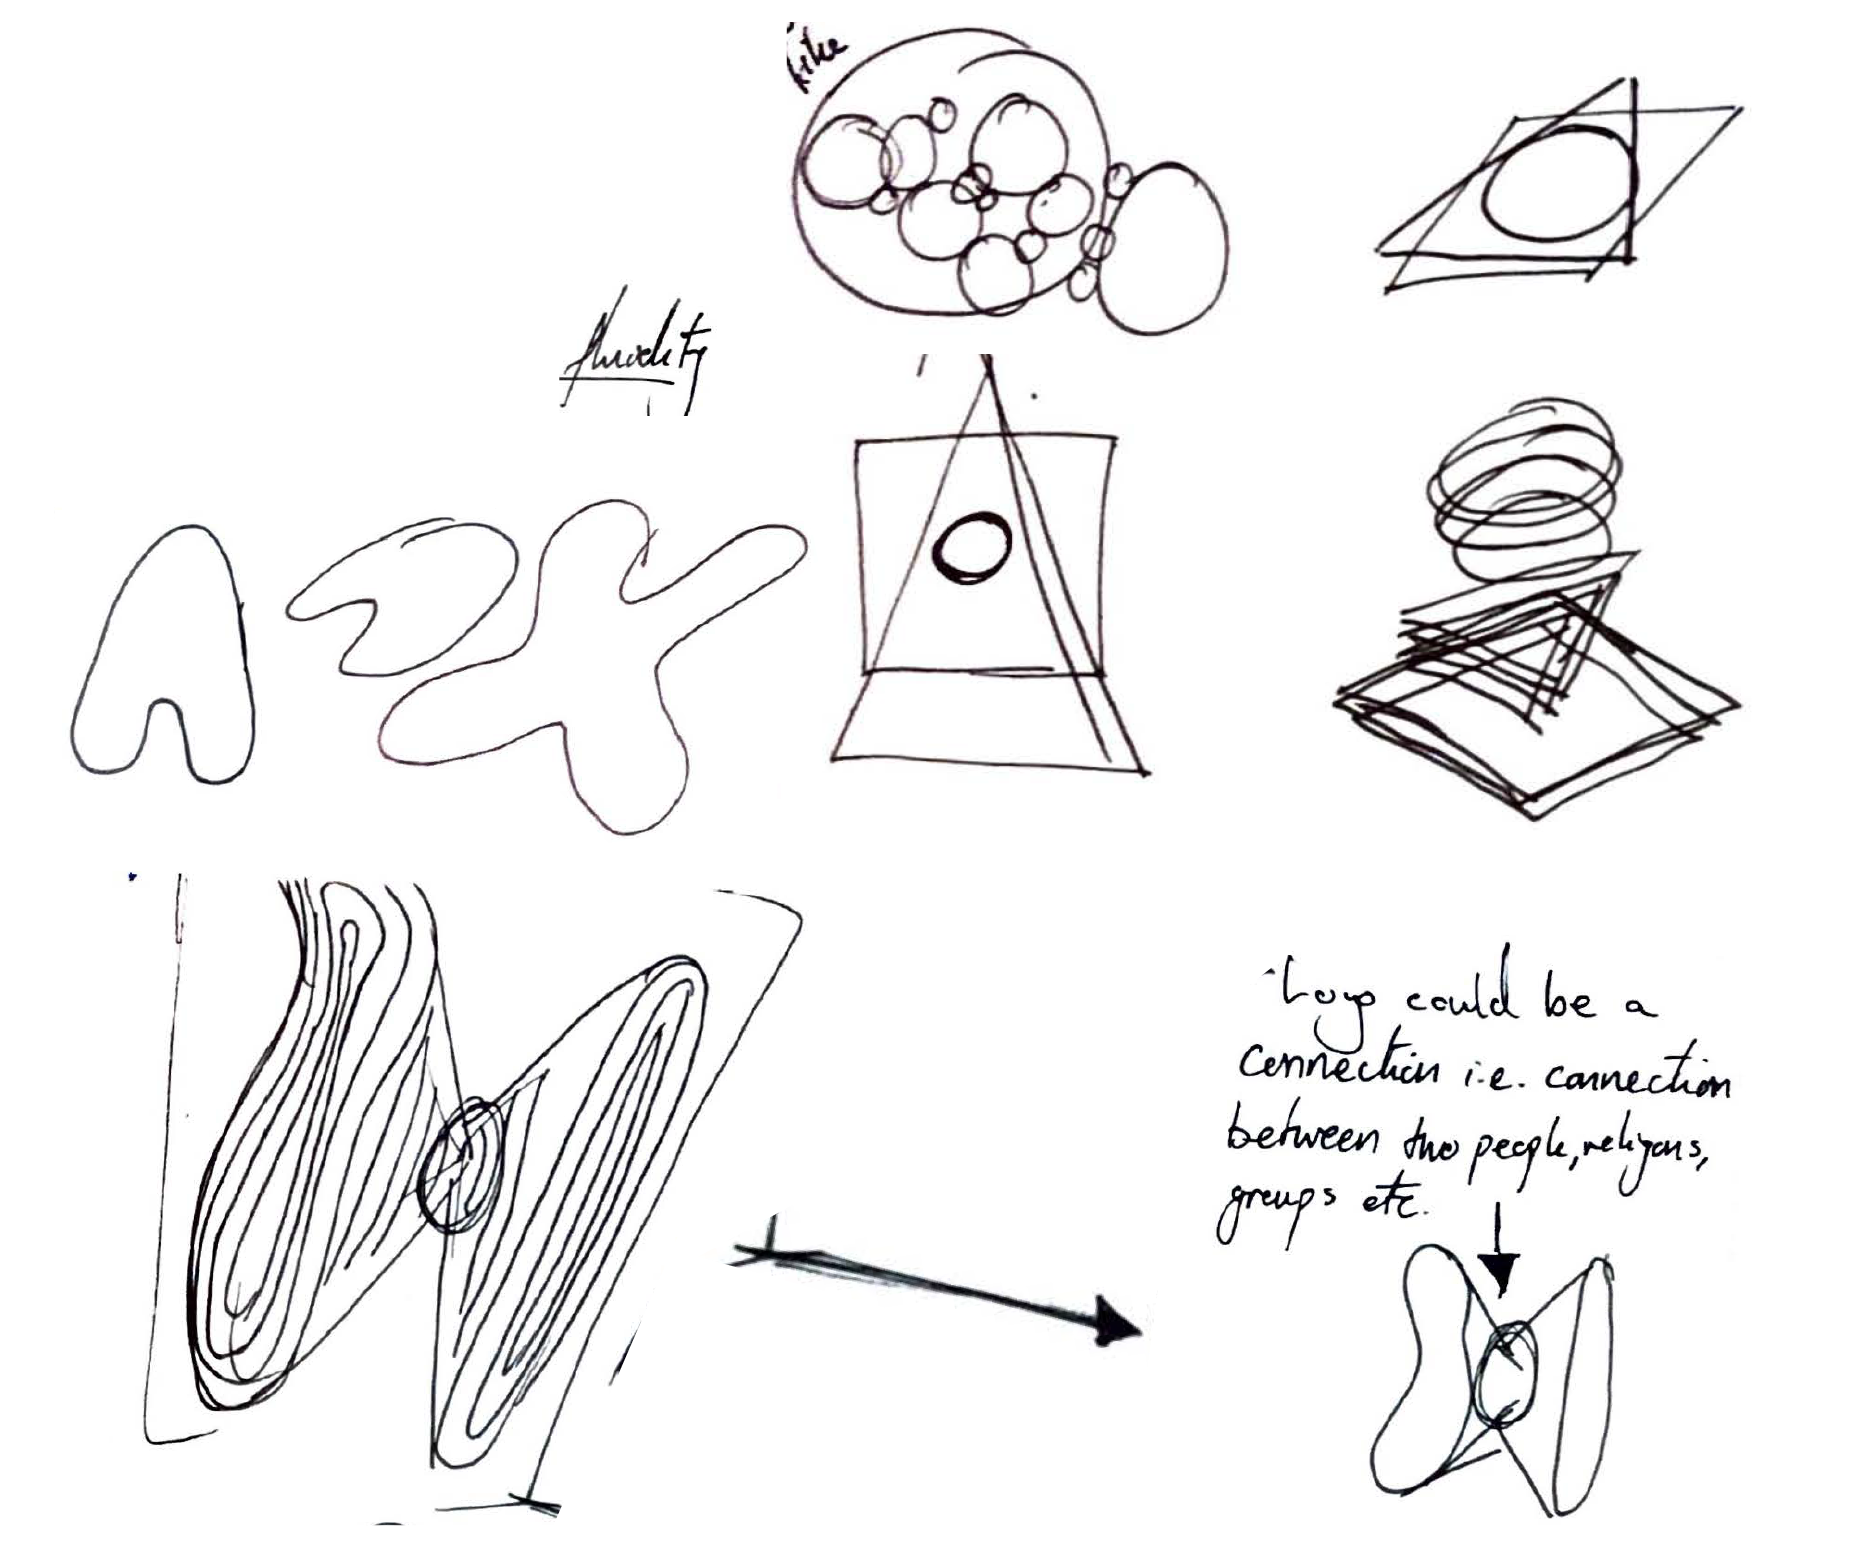 Like
fluidity
Logo could be a
connection i.e. connection
between two people, religons,
groups etc.